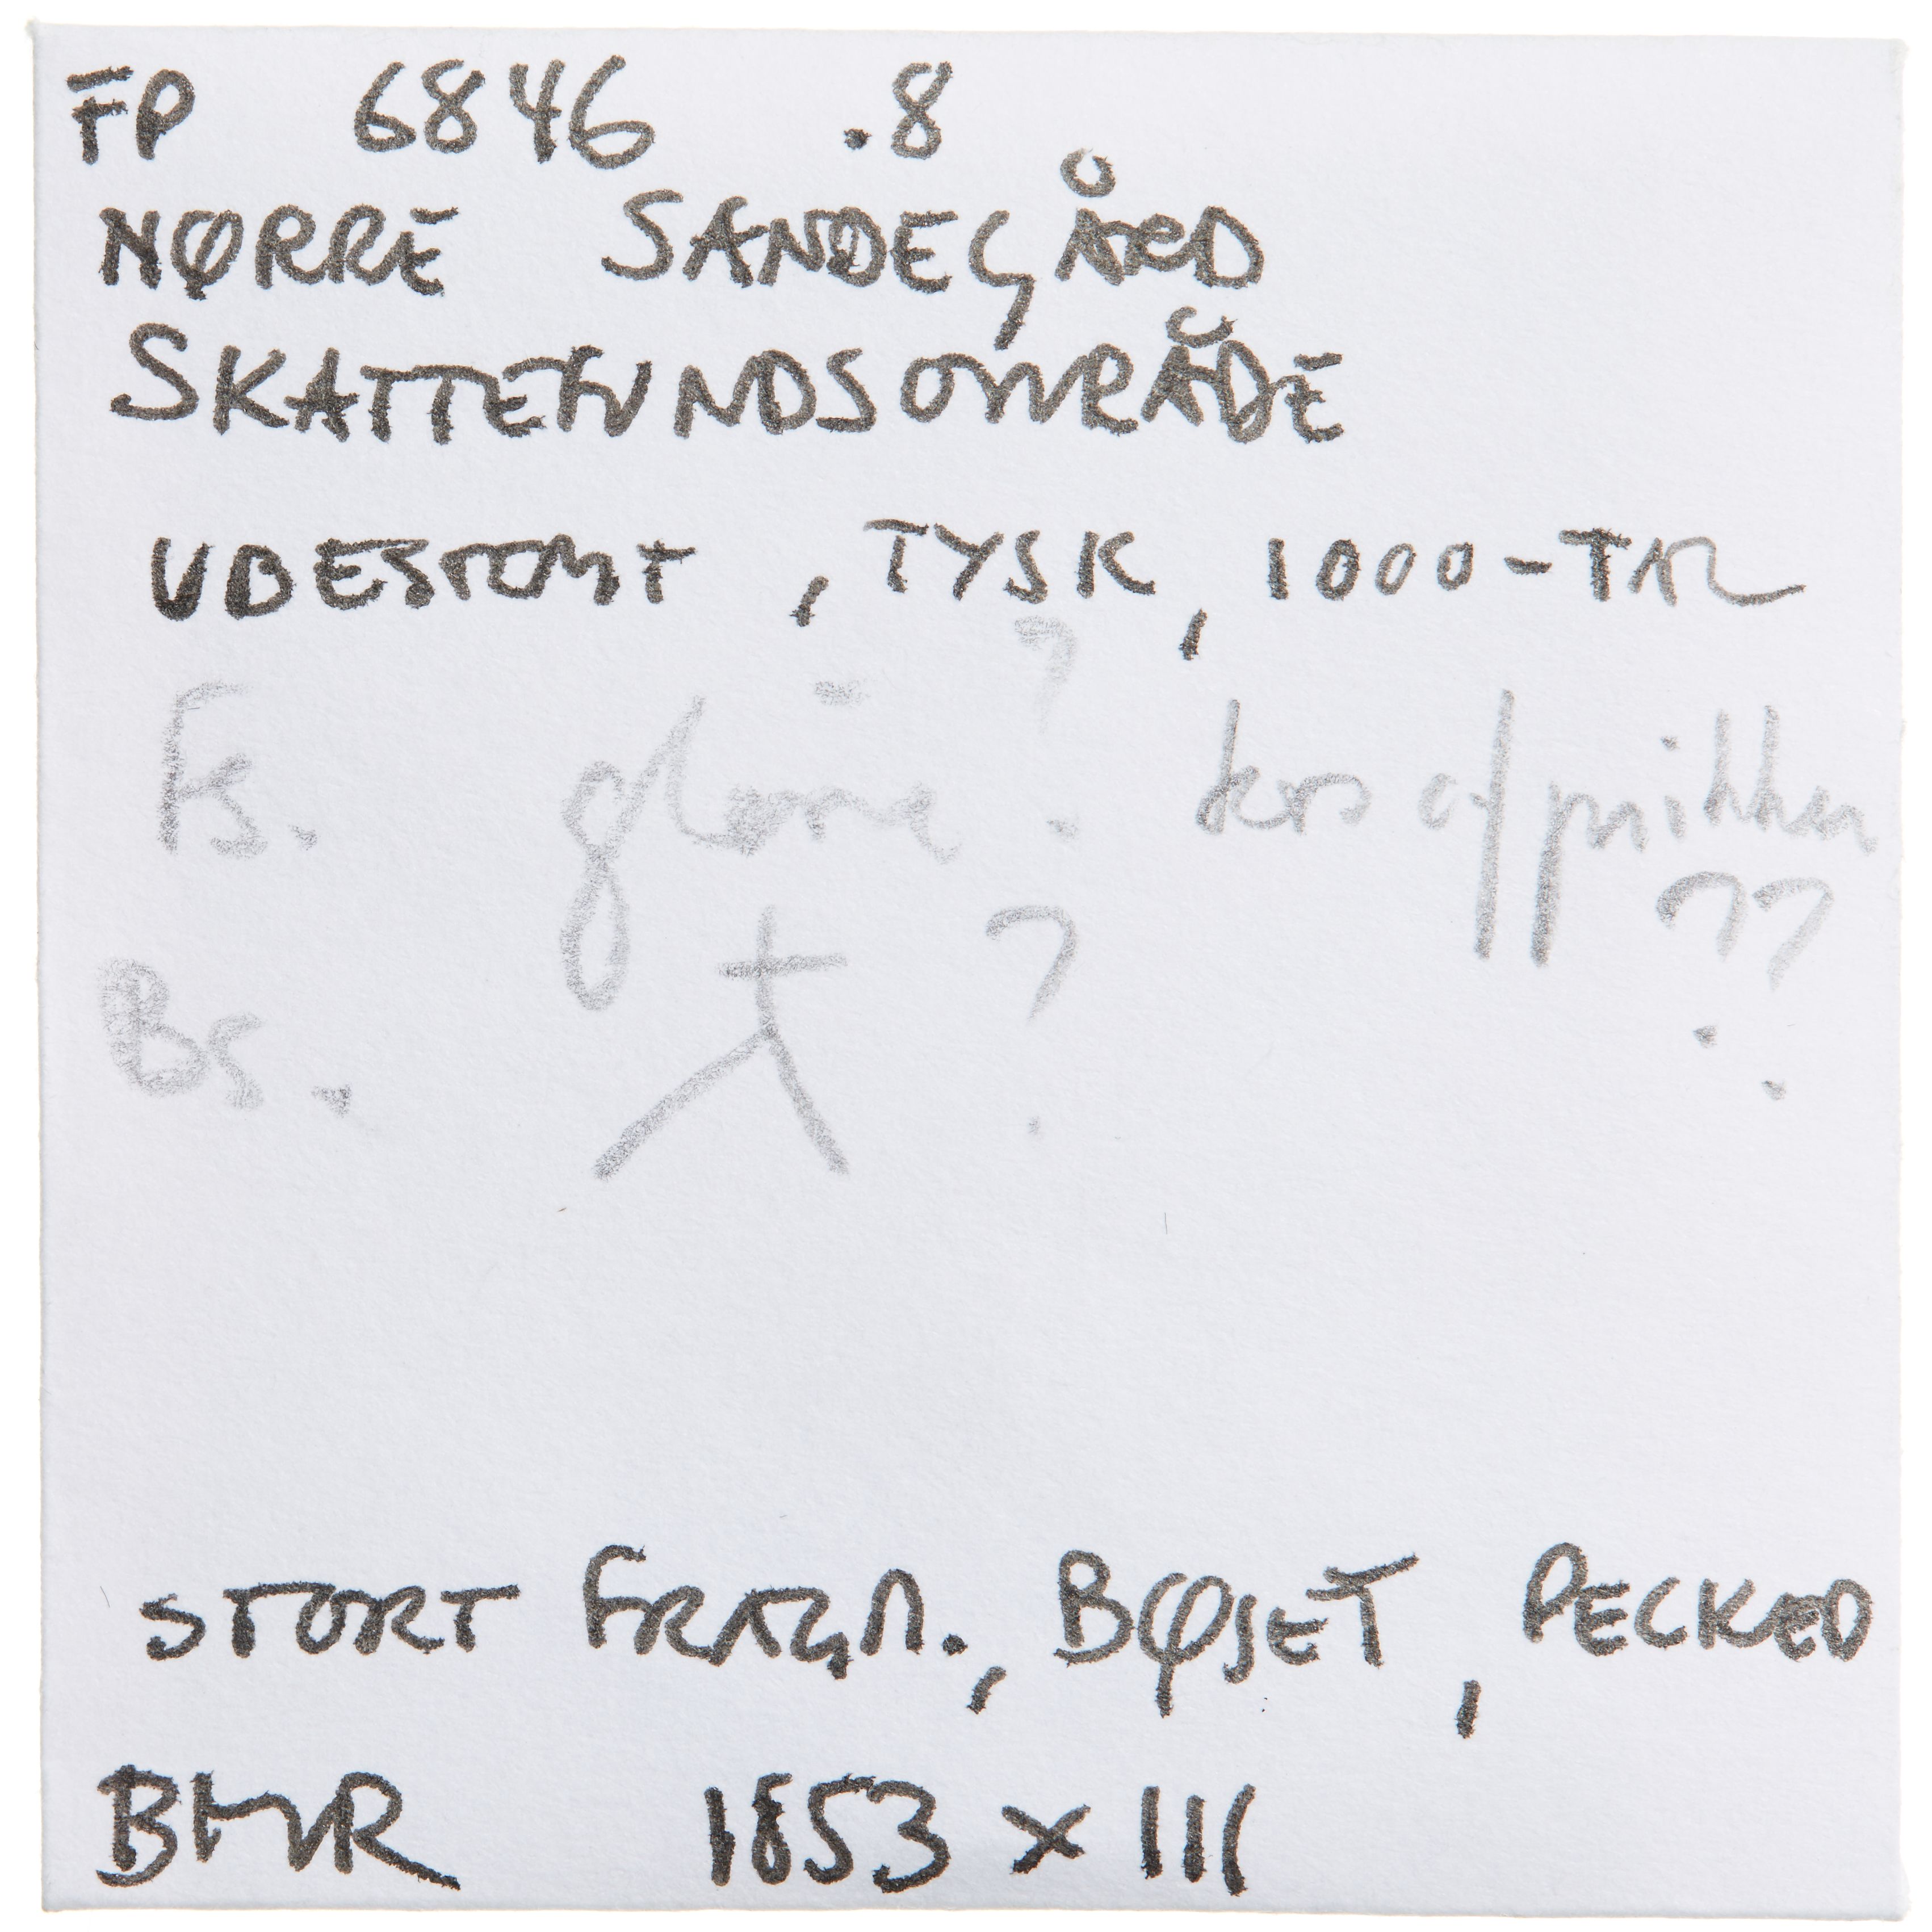 FP 6846 .8
NØRRE SANDEGÅRD
SKATTEFUNDSOMRÅDE
UDESTEMT, TYSK, 1000-TAL
Fs. glorie? kors af prikker??
Bs. ?
STORT FRAGM., BØJET, PECKED
BMR 1853 x 111